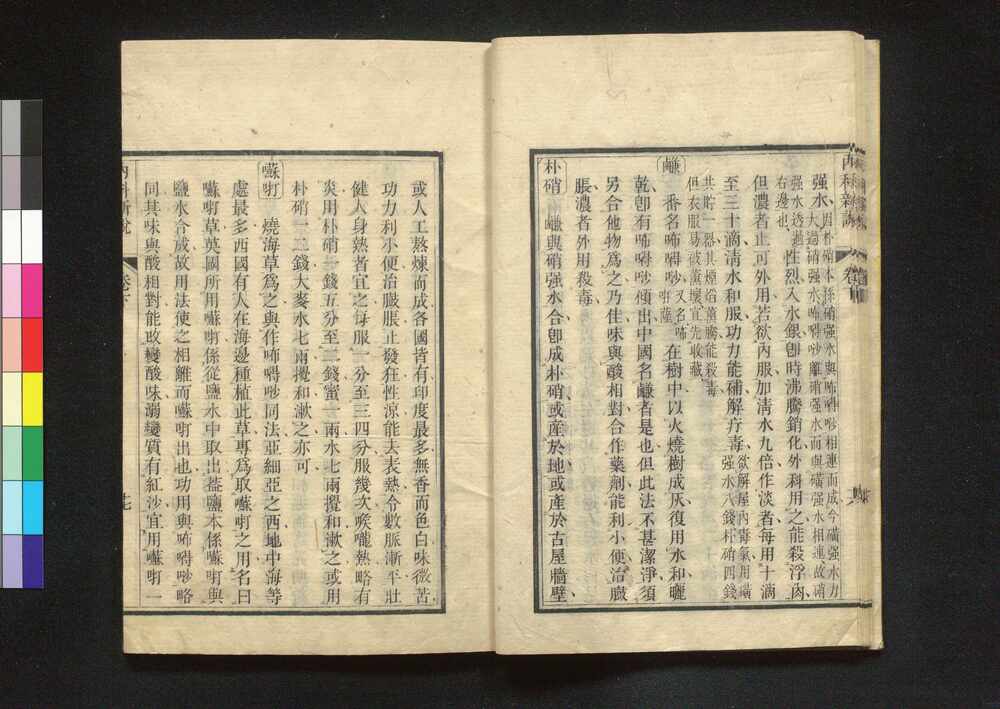 內科新說
卷下
强水 因朴硝本係硝强水與咘嘚吵相連而成今磺强水力
大過硝强水咘嘚吵離硝强水而與磺强水相連故硝
强水透過
右邊也 性烈入水銀卽時沸騰銷化外科用之能殺浮肉
但濃者止可外用若欲內服加淸水九倍作淡者每用十滴
至三十滴淸水和服功力能補解疔毒 欲解屋內毒氣用磺
强水八錢朴硝四錢
共貯一器其煙焰薰騰能殺毒
但衣服易被薰壞宜先收藏
鹻 番名咘嘚吵 又名咘
咑薩 在樹中以火燒樹成灰復用水和曬
乾卽有咘嘚吵傾出中國名鹻者是也但此法不甚潔淨須
另合他物爲之乃佳味與酸相對合作藥劑能利小便治臌
脹濃者外用殺毒
朴硝 鹻與硝强水合卽成朴硝或產於地或產於古屋牆壁
或人工熬煉而成各國皆有印度最多無香而色白味微苦
功力利小便治臌脹止發狂性涼能去表熱令數脈漸平壯
健人身熱者宜之每服一分至三四分服幾次喉嚨熱略有
炎用朴硝一錢五分至二錢蜜一兩水七兩攪和漱之或用
朴硝一二錢大麥水七兩攪和漱之亦可
囌咑 燒海草爲之與作咘嘚吵同法亞細亞之西地中海等
處最多西國有人在海邊種植此草專爲取囌咑之用名曰
囌咑草英國所用囌咑係從鹽水中取出葢鹽本係囌咑與
鹽水合成故用法使之相離而囌咑出也功用與咘嘚吵略
同其味與酸相對能改變酸味溺變質有紅沙宜用囌咑一
內科新說
卷下